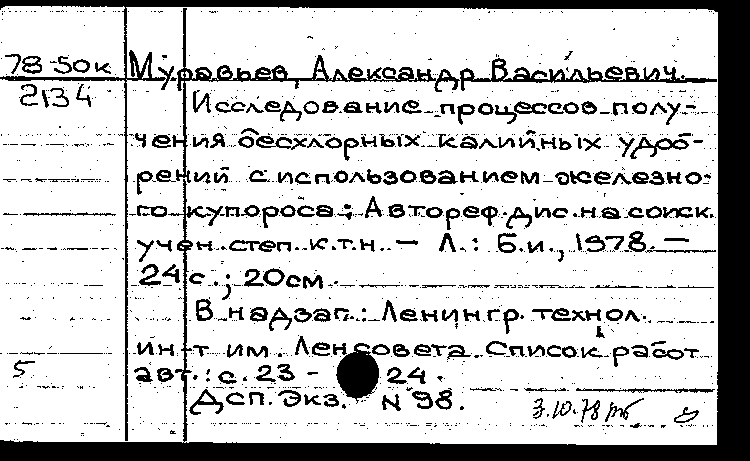 78-50к Муравьев, Александр Васильевич.
2134 Исследование процессов полу-
чения бесхлорных калийных удоб-
рений с использованием железно-
го купороса: Автореф. дис. на соиск.
учен. степ. к.т.н. – Л.: Б.и., 1978. –
24 с.; 20см.
В надзаг.: Ленингр. технол.
ин-т им. Ленсовета. Список работ
5 авт.: с. 23 - 24.
Дсп. Экз. N 98.
3.10.78